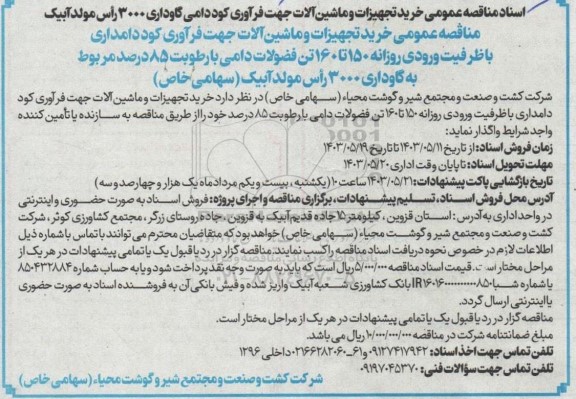 اسناد مناقصه عمومی خرید تجهیزات و ماشین آلات جهت فرآوری کود دامی گاوداری ۳۰۰۰ رأس مولد آبیک
مناقصه عمومی خرید تجهیزات و ماشین آلات جهت فرآوری کود دامداری
با ظرفیت ورودی روزانه ۱۵۰ تا ۱۶۰ تن فضولات دامی با رطوبت ۸۵ درصد مربوط
به گاوداری ۳۰۰۰ رأس مولد آبیک (سهامی خاص)
شرکت کشت و صنعت و مجتمع شیر و گوشت محیاء (سهامی خاص) در نظر دارد خرید تجهیزات و ماشین آلات جهت فرآوری کود
دامداری با ظرفیت ورودی روزانه ۱۵۰ تا ۱۶۰ تن فضولات دامی با رطوبت ۸۵ درصد خود را از طریق مناقصه به سازنده یا تأمین کننده
واجد شرایط واگذار نماید:
زمان فروش اسناد: از تاریخ ۱۴۰۳/۰۵/۱۱ تا تاریخ ۱۴۰۳/۰۵/۱۹
مهلت تحویل اسناد: تا پایان وقت اداری ۱۴۰۳/۰۵/۲۰
تاریخ بازگشایی پاکت پیشنهادات: ۱۴۰۳/۰۵/۲۱ ساعت ۱۰ (یکشنبه، بیست و یکم مرداد ماه یک هزار و چهارصد و سه)
آدرس محل فروش اسناد، تسلیم پیشنهادات، برگزاری مناقصه و اجرای پروژه: فروش اسناد به صورت حضوری و اینترنتی
در واحد اداری به آدرس: استان قزوین، کیلومتر ۱۵ جاده قدیم آبیک به قزوین، جاده روستای زرگر، مجتمع کشاورزی کوثر، شرکت
کشت و صنعت و مجتمع شیر و گوشت محیاء (سهامی خاص) خواهد بود که متقاضیان محترم می توانند با تماس با شماره ذیل
اطلاعات لازم در خصوص نحوه دریافت اسناد مناقصه را کسب نمایند. مناقصه گزار در رد یا قبول یک یا تمامی پیشنهادات در هر یک از
مراحل مختار است. قیمت اسناد مناقصه ۵/۰۰۰/۰۰۰ ریال است که باید به صورت وجه نقد پرداخت شود و یا به حساب شماره ۸۵۰۴۳۲۸۸۴
یا شماره شبا بانک کشاورزی شعبه آبیک واریز شده و فیش بانکی آن به فروشنده اسناد به صورت حضوری
یا اینترنتی ارسال گردد.
مناقصه گزار در رد یا قبول یک یا تمامی پیشنهادات در هر یک از مراحل مختار است.
مبلغ ضمانتنامه شرکت در مناقصه ۱۰/۰۰۰/۰۰۰/۰۰۰ ریال می باشد.
تلفن تماس جهت اخذ اسناد: ۰۹۱۲۷۴۱۷۹۴۲ و ۶۱_۰۲۱۶۶۲۸۲۰۶۰ داخلی ۱۲۹۶
تلفن تماس جهت سؤالات فنی: ۰۹۱۹۷۰۴۵۳۷۰
شرکت کشت و صنعت و مجتمع شیر و گوشت محیاء (سهامی خاص)